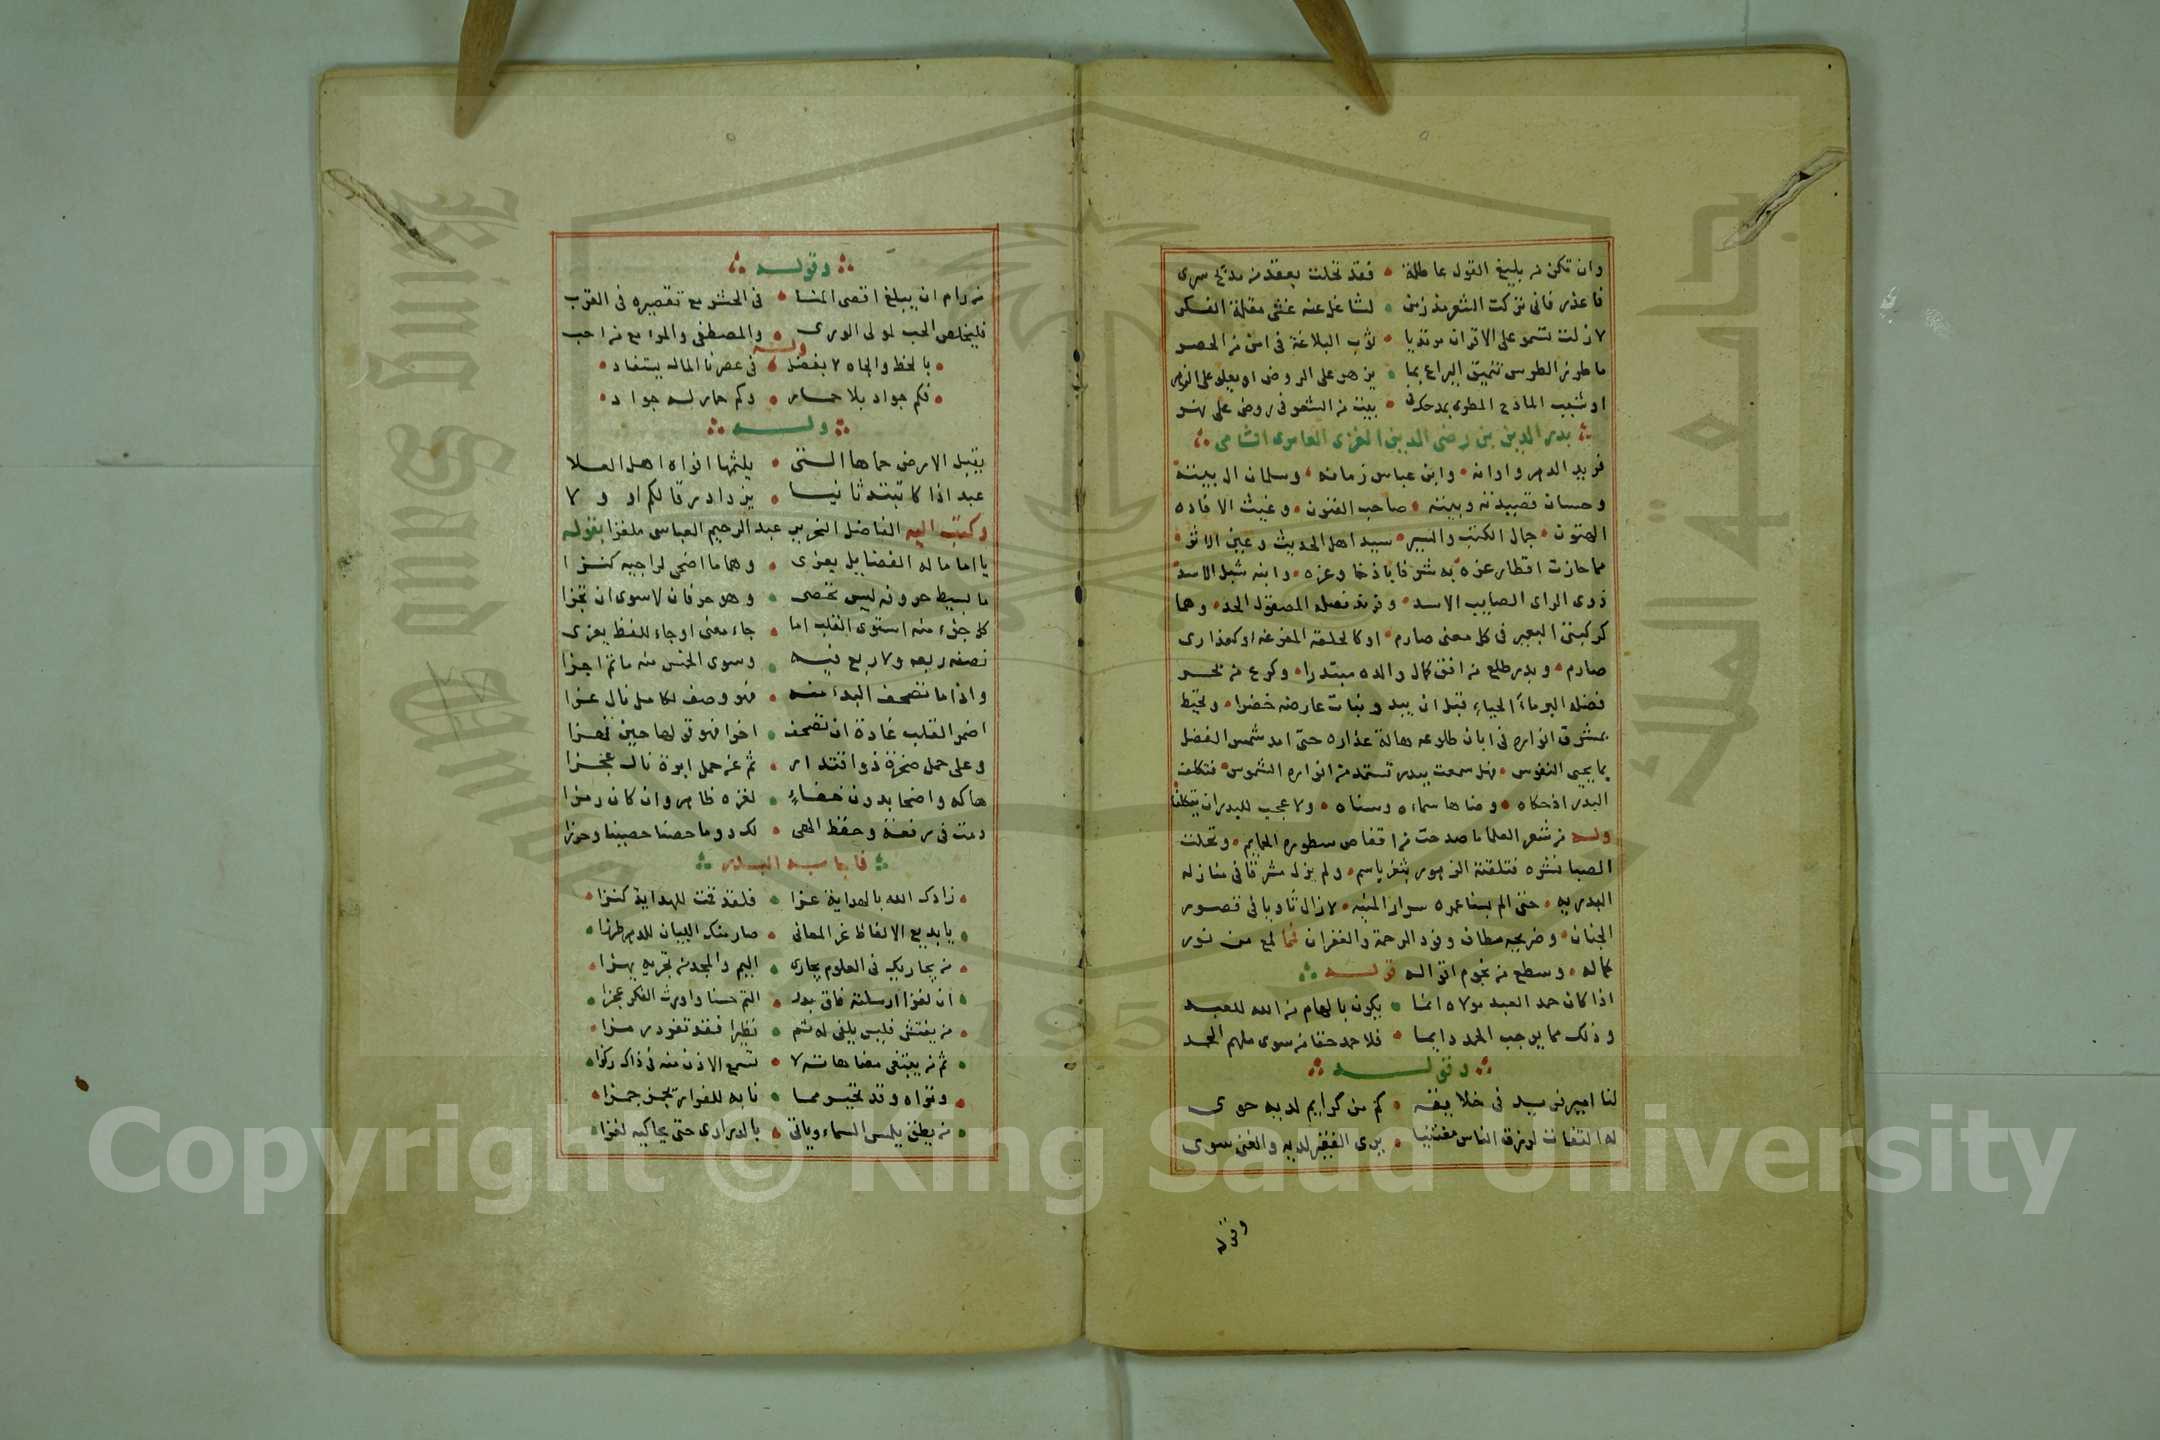 وان تكن من بليغ القول عاطلة • فقد تحلت بعقد من مديح سرى
فاعذر فانى تركت الشعر مذ زمن • لشاغل عنه عشى مقلة الفكر
لا زلت تسمو على الاقران مرتديا • ثوب البلاغة فى امن من الحصر
ما طرز الطرس تنميق اليراع بما • يزهو على الروض او يعلى على الزهر
او شبب المادح المطرى بمدحك فى • بيت من الشعر فى روض على نهر
بدر الدين بن رضى الدين الغزى العامرى الشامى
فريد الدهر واوانه • وابن عباس زمانه • وسلمان ال بيته
وحسان قصيدته وبيته • صاحب الفنون • وغيث الافاده
الهتون • جمال الكتب والسير • سيد اهل الحديث وعين الاثر •
مما حازت اقطار غزه به شرفا باذخا وعزه • وابنه شبل الاسد
ذوى الراى الصايب الاسد • وفرند نصله المصقول الحد • وهما
كركبتى البعير فى كل معنى صارم • او كالحلقة المفرغه او كغرارى
صارم • وبدر طلع من افق كمال والده مبتدرا • وكرع من بحر
فضله البر ماء الحياء قبل ان يبدو نبات عارضه خضرا • وتحيط
بمشرق انواره فى ابان طلوعه هالة عذاره حتى امد شمس الفضل
بما يحيى النفوس • فهل سمعت ببدر تستمد من انواره الشموس • فتكلف
البدر اذ حكاه • وضاها سماءه وسناه • ولا عجب للبدر ان يتكلفا
وله من شعر العلما ما صدحت من اقفاص سطوره الحمايم • وتحلت
الصبا نشره فتلقته الزهور بثغر باسم • ولم يزل مشرقا فى منازله
البدريه • حتى الم بسنا عمره سرار المنيه • لا زال ثاويا فى قصور
الجنان • وضريحه مطاف وفود الرحمة والغفران فما لمع من نور
كماله • وسطع من نجوم اقواله قوله
اذا كان حمد العبد مولاه انما • يكون بالهام من الله للعبد
وذلك مما يوجب الحمد دايما • فلا حمد حقا من سوى ملهم الحمد
وقوله
لنا امير نرى سيد فى خلايقه • كم من كرايم لديه حوى
له التفات لرزق الناس مغتنيا • يرى الفقير لديه والغنى سوى
وقوله
وقوله
من رام ان يبلغ اقصى المنا • فى الحشر مع تقصيره فى القرب
فليخلص الحب لمولى الورى • والمصطفى والمرء مع من احب
وله
• بالحظ والجاه لا بفضل • فى عصرنا المال يستفاد •
• فكم جواد بلا حمار • وكم حمار له جواد •
وله
يقبل الارض حماها التى • يلثمها افواه اهل العلا
عبد اذا كاتبته ثانيا • يزداد رقا لكم او ولا
وكتب اليه الفاضل النحرير عبد الرحيم العباسى ملغزا بقوله
يا اماما له الفضايل يعزى • وهماما اضحى لراجيه كنزا
ما بسيط حروفه ليس تحصى • وهو حرفان لا سوى ان تجزا
كل جزء منه استوى القلب اما • جاء معنى او جاء للفظ يعزى
نصفه ربعه ولا ربع فيه • وسوى الخمس منه ما تم اجزا
واذا ما تصحف البدء منه • فهو وصف لكامل نال عزا
اضمر القلب غادة ان تصحف • اخرا فهو قولها حين تهزا
وعلى حمل صخرة ذو اقتدار • ثم عن حمل ابرة نال عجزا
هاكه واضحا بدون خفاء • لغزه ظاهر وان كان رمزا
دمت فى رفعة وحفظ الهى • لك دوما حصنا حصينا وحرزا
فاجابه البدر
• زادك الله بالهداية عزا • فلقد فتحت للهداية كنزا •
• يا بديع الالفاظ غر المعانى • صار منك البيان للدهر طرزا •
• من يجاريك فى العلوم يجارى • اليم والمجد من تجريه يهزا •
• ان لغزا ارسلته فاق بدر • التم حسنا واورث الفكر عجزا •
• من يفتش فليس يلفى له ثم • نظيرا فقد تفرد رمزا •
• ثم من يبتغى مضاهاته لا • تسمع الاذن منه فى ذاك ركزا •
• وتراه وقد تحير مما • نابه للفرار يجمز جمزا •
• من يطق يلمس السماء وياتى • بالدرارى حتى يحاكيه لغزا •
جامعة الملك سعود
King Saud University
1957
Copyright © King Saud University